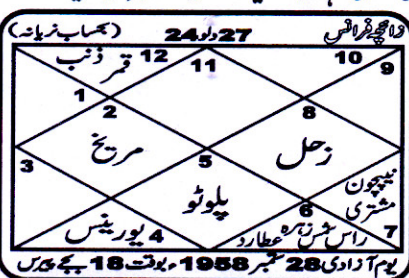 زائچہ فرانس 27 دلو 24 (بحساب نریانہ)
9 10 11 12 قمر ذنب
1 2 8
3 مریخ 5 زحل
پلوٹو نیپچون مشتری
4 یورینس 6 راس شمس زہرہ عطارد 7
یوم آزادی 28 ستمبر 1958ء بوقت 18 بجے پیرس